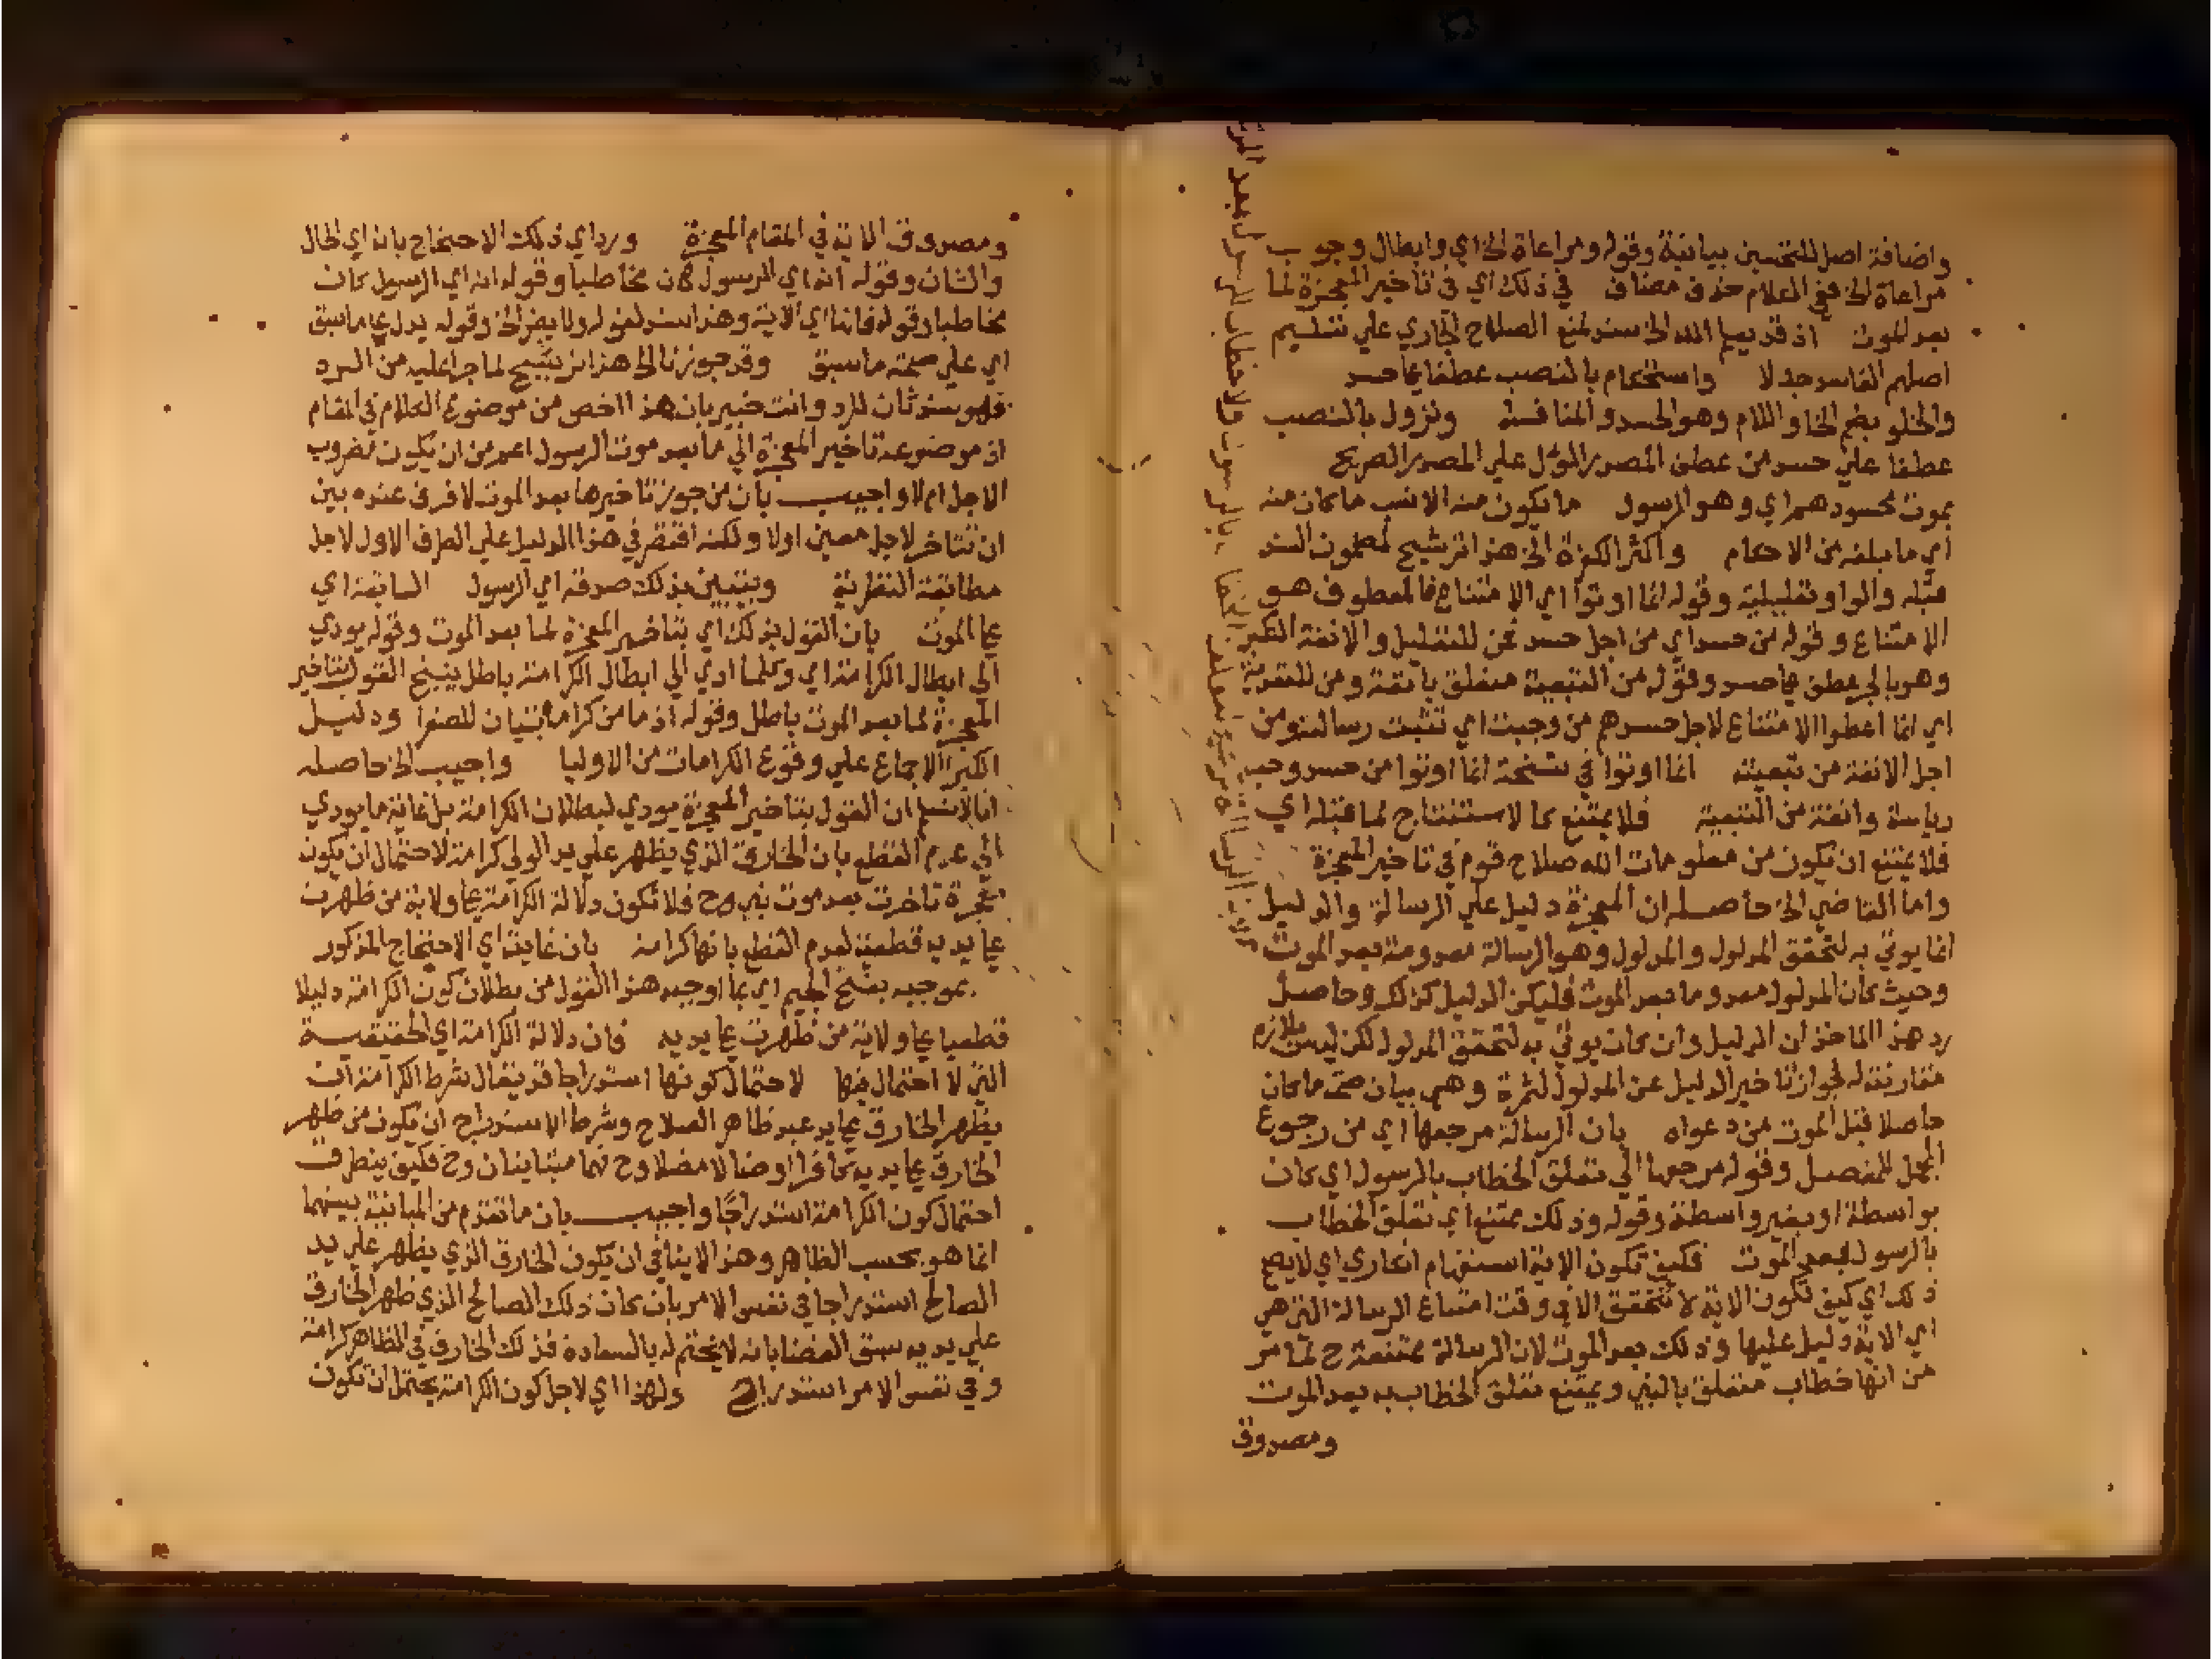 واضافة اصل للتحسين بيانية وقوله ومراعاة الخ اي وابطال وجوب
مراعاة الخ ففي الكلام حذف مضاف في ذلك اي في تاخير المعجزة لما
بعد الموت اذ قد يعلم الله الخ سند لمنع الصلاح الجاري علي تسليم
اصلهم الفاسد جدلا واستحكام بالنصب عطفا علي حسد
والخلو بضم الخا واللام وهو الحسد والمنافسة ونزول بالنصب
عطفا علي حسد من عطف المصدر المؤل علي المصدر الصريح
بموت محسودهم اي وهو الرسول ما تكون منه الانسب ما كان منه
اي ما بلغه من الاحكام واكثر الكفرة الخ هذا ترشيح لمضمون السند
قبله والواو تعليلية وقوله انما اوتوا اي الامتناع فالمعطوف هو
الامتناع وقوله من حسد اي من اجل حسد فمن للتعليل والانفة الكبر
وهو بالجر عطف علي حسد وقوله من التبعية متعلق بانفة ومن للتعدية
اي انما اعطوا الامتناع لاجل حسدهم من وجبت اي تثبت رسالته ومن
اجل الانفة من تبعيته انما اوتوا في نسخة انما اوتوا من حسد وحب
رياسة وانفة من التبعية فلا يمتنع كالاستنتاج لما قبله اي
فلا يمتنع ان تكون من معلومات الله صلاح قوم في تاخير المعجزة
واما القاضي الخ حاصله ان المعجزة دليل علي الرسالة والدليل
انما يوتي به لتحقق المدلول والمدلول وهو الرسالة معدومة بعد الموت
وحيث كان المدلول معدوما بعد الموت فليكن الدليل كذلك وحاصل
رد هذا الماخذ ان الدليل وان كان يوتي به لتحقق المدلول لكن ليس ملازم
مقارنته له لجواز تاخير الدليل عن المدلول لثمرة وهي بيان صحة ما كان
حاصلا قبل الموت من دعواه بان الرسالة مرجعها اي من رجوع
المجمل للمفصل وقوله مرجعها الي تعلق الخطاب بالرسول اي كان
بواسطة او بغير واسطة وقوله وذلك ممتنع اي تعلق الخطاب
بالرسول بعد الموت فكيف تكون الاية استفهام انكاري اي لا يصح
ذلك اي كيف تكون الاية لا تتحقق الا في وقت امتناع الرسالة التي هي
اي الاية دليل عليها وذلك بعد الموت لان الرسالة ممتنعة ح لما مر
من انها خطاب متعلق بالنبي ويمتنع تعلق الخطاب به بعد الموت
ومصدوق
ومصدوق الاية في المقام المعجزة ورد اي ذلك الاحتجاج بانه اي الحال
والشان وقوله انه اي الرسول كان مخاطبا وقوله انه اي الرسول كان
مخاطبا وقوله فانها اي الاية وهذا سند لقوله ولا يضر الخ وقوله يدل علي ما سبق
اي علي صحة ما سبق وقد جوزنا الخ هذا ترشيح لما جرا عليه من الرد
فهو سند ثان للرد وانت خبير بان هذا اخص من موضوع الكلام في المقام
اذ موضوعه تاخير المعجزة الي ما بعد موت الرسول اعم من ان يكون مضروب
الاجل ام لا واجيب بان من جوز تاخيرها بعد الموت لا فرق عنده بين
ان تتاخر لاجل معين او لا ولكنه اقتصر في هذا الدليل علي الطرف الاول لاجل
مطابقة النظرية ويتبين بذلك صدقه اي الرسول السابقة اي
علي الموت بان القول بذلك اي بتاخير المعجزة لما بعد الموت وقوله يودي
الي ابطال الكرامة اي وكلما ادي الي ابطال الكرامة باطل ينتج القول بتاخير
المعجزة لما بعد الموت باطل وقوله اذ ما من كرامة بيان للصغرا ودليل
الكبرا الاجماع علي وقوع الكرامات من الاوليا واجيب الخ حاصله
انا لا نسلم ان القول بتاخير المعجزة يودي لبطلان الكرامة بل غاية ما يودي
الي عدم القطع بان الخارق الذي يظهر علي يد الولي كرامة لاحتمال ان يكون
معجزة تاخرت بعد موت نبي وح فلا تكون دلالة الكرامة علي ولاية من ظهرت
علي يديه قطعية لعدم القطع بانها كرامة بان غايته اي الاحتجاج المذكور
بموجبه بفتح الجيم اي بما اوجبه هذا القول من بطلان كون الكرامة دليلا
قطعيا علي ولاية من ظهرت علي يديه فان دلالة الكرامة اي الحقيقية
التي لا احتمال فيها لاحتمال كونها استدراجا قد يقال شرط الكرامة ان
يظهر الخارق علي يد عبد ظاهر الصلاح وشرط الاستدراج ان يكون من ظهر
الخارق علي يديه كافرا او ضالا مضلا وح فهما متباينان وح فكيف يتطرق
احتمال كون الكرامة استدراجا واجيب بان ما تقدم من المباينة بينهما
انما هو بحسب الظاهر وهذا لا ينافي ان يكون الخارق الذي يظهر علي يد
الصالح استدراجا في نفس الامر بان كان ذلك الصالح الذي ظهر الخارق
علي يديه سبق القضا بانه لا يختم له بالسعادة فذلك الخارق في الظاهر كرامة
وفي نفس الامر استدراج ولهذا اي لاجل كون الكرامة يحتمل ان تكون